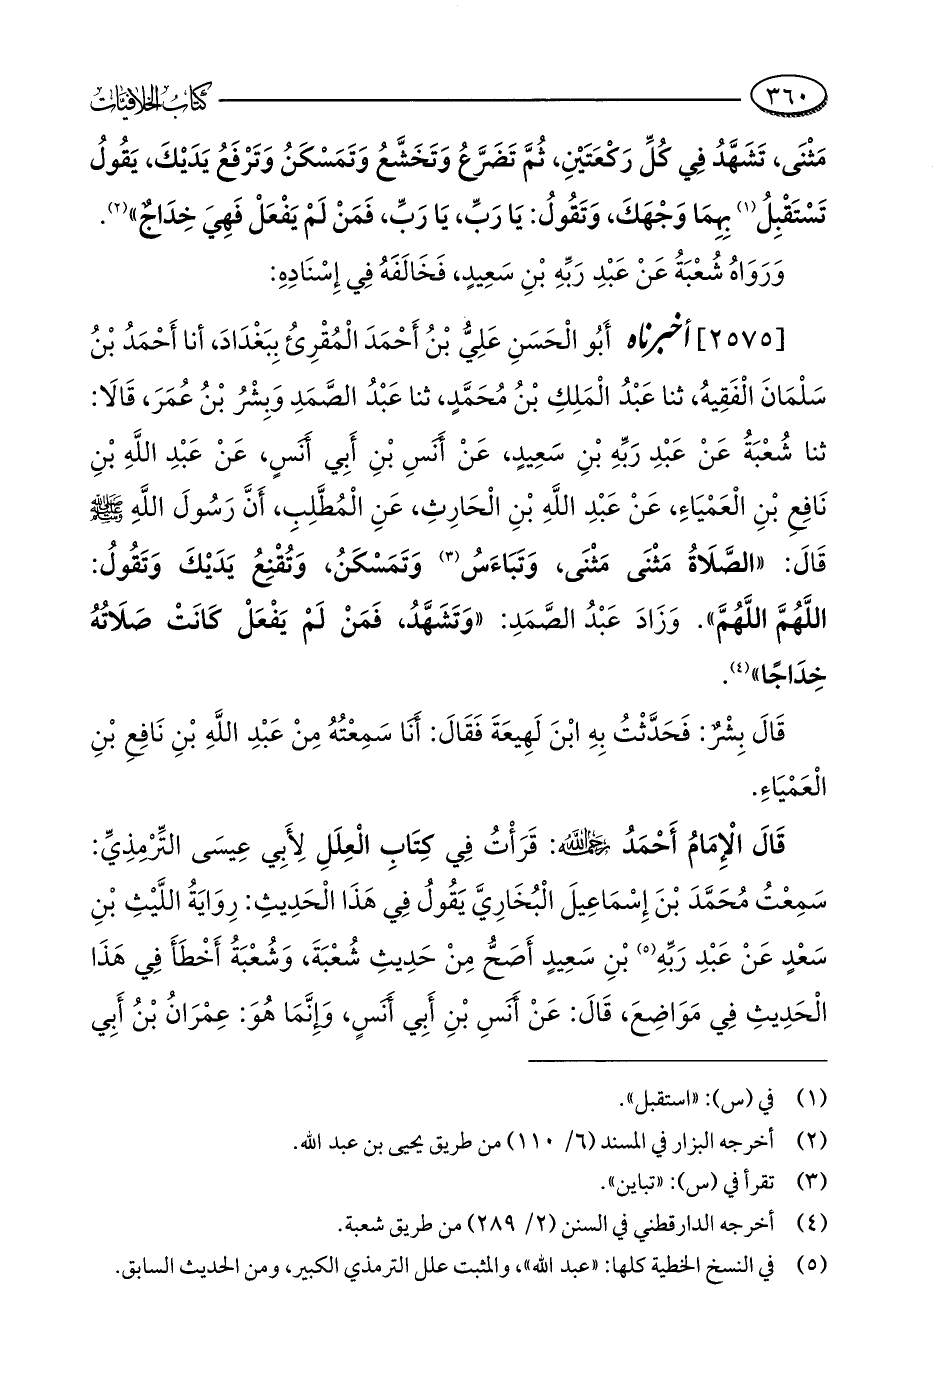 ٣٦٠ كتاب الخلافيات
مَثْنَى، تَشَهَّدُ فِي كُلِّ رَكْعَتَيْنِ، ثُمَّ تَضَرَّعُ وَتَخَشَّعُ وَتَمَسْكَنُ وَتَرْفَعُ يَدَيْكَ، يَقُولُ
تَسْتَقْبِلُ(١) بِهِمَا وَجْهَكَ، وَتَقُولُ: يَا رَبِّ، يَا رَبِّ، فَمَنْ لَمْ يَفْعَلْ فَهِيَ خِدَاجٌ»(٢).
وَرَوَاهُ شُعْبَةُ عَنْ عَبْدِ رَبِّهِ بْنِ سَعِيدٍ، فَخَالَفَهُ فِي إِسْنَادِهِ:
[٢٥٧٥] أخبرناه أَبُو الْحَسَنِ عَلِيُّ بْنُ أَحْمَدَ الْمُقْرِئُ بِبَغْدَادَ، أنا أَحْمَدُ بْنُ
سَلْمَانَ الْفَقِيهُ، ثنا عَبْدُ الْمَلِكِ بْنُ مُحَمَّدٍ، ثنا عَبْدُ الصَّمَدِ وَبِشْرُ بْنُ عُمَرَ، قَالَا:
ثنا شُعْبَةُ عَنْ عَبْدِ رَبِّهِ بْنِ سَعِيدٍ، عَنْ أَنَسِ بْنِ أَبِي أَنَسٍ، عَنْ عَبْدِ اللَّهِ بْنِ
نَافِعِ بْنِ الْعَمْيَاءِ، عَنْ عَبْدِ اللَّهِ بْنِ الْحَارِثِ، عَنِ الْمُطَّلِبِ، أَنَّ رَسُولَ اللَّهِ ﷺ
قَالَ: «الصَّلَاةُ مَثْنَى مَثْنَى، وَتَبَاءَسُ(٣) وَتَمَسْكَنُ، وَتُقْنِعُ يَدَيْكَ وَتَقُولُ:
اللَّهُمَّ اللَّهُمَّ». وَزَادَ عَبْدُ الصَّمَدِ: «وَتَشَهَّدُ، فَمَنْ لَمْ يَفْعَلْ كَانَتْ صَلَاتُهُ
خِدَاجًا»(٤).
قَالَ بِشْرٌ: فَحَدَّثْتُ بِهِ ابْنَ لَهِيعَةَ فَقَالَ: أَنَا سَمِعْتُهُ مِنْ عَبْدِ اللَّهِ بْنِ نَافِعِ بْنِ
الْعَمْيَاءِ.
قَالَ الْإِمَامُ أَحْمَدُ رحمه الله: قَرَأْتُ فِي كِتَابِ الْعِلَلِ لِأَبِي عِيسَى التِّرْمِذِيِّ:
سَمِعْتُ مُحَمَّدَ بْنَ إِسْمَاعِيلَ الْبُخَارِيَّ يَقُولُ فِي هَذَا الْحَدِيثِ: رِوَايَةُ اللَّيْثِ بْنِ
سَعْدٍ عَنْ عَبْدِ رَبِّهِ(٥) بْنِ سَعِيدٍ أَصَحُّ مِنْ حَدِيثِ شُعْبَةَ، وَشُعْبَةُ أَخْطَأَ فِي هَذَا
الْحَدِيثِ فِي مَوَاضِعَ، قَالَ: عَنْ أَنَسِ بْنِ أَبِي أَنَسٍ، وَإِنَّمَا هُوَ: عِمْرَانُ بْنُ أَبِي
(١) في (س): «استقبل».
(٢) أخرجه البزار في المسند (٦/ ١١٠) من طريق يحيى بن عبد الله.
(٣) تقرأ في (س): «تباين».
(٤) أخرجه الدارقطني في السنن (٢/ ٢٨٩) من طريق شعبة.
(٥) في النسخ الخطية كلها: «عبد الله»، والمثبت علل الترمذي الكبير، ومن الحديث السابق.